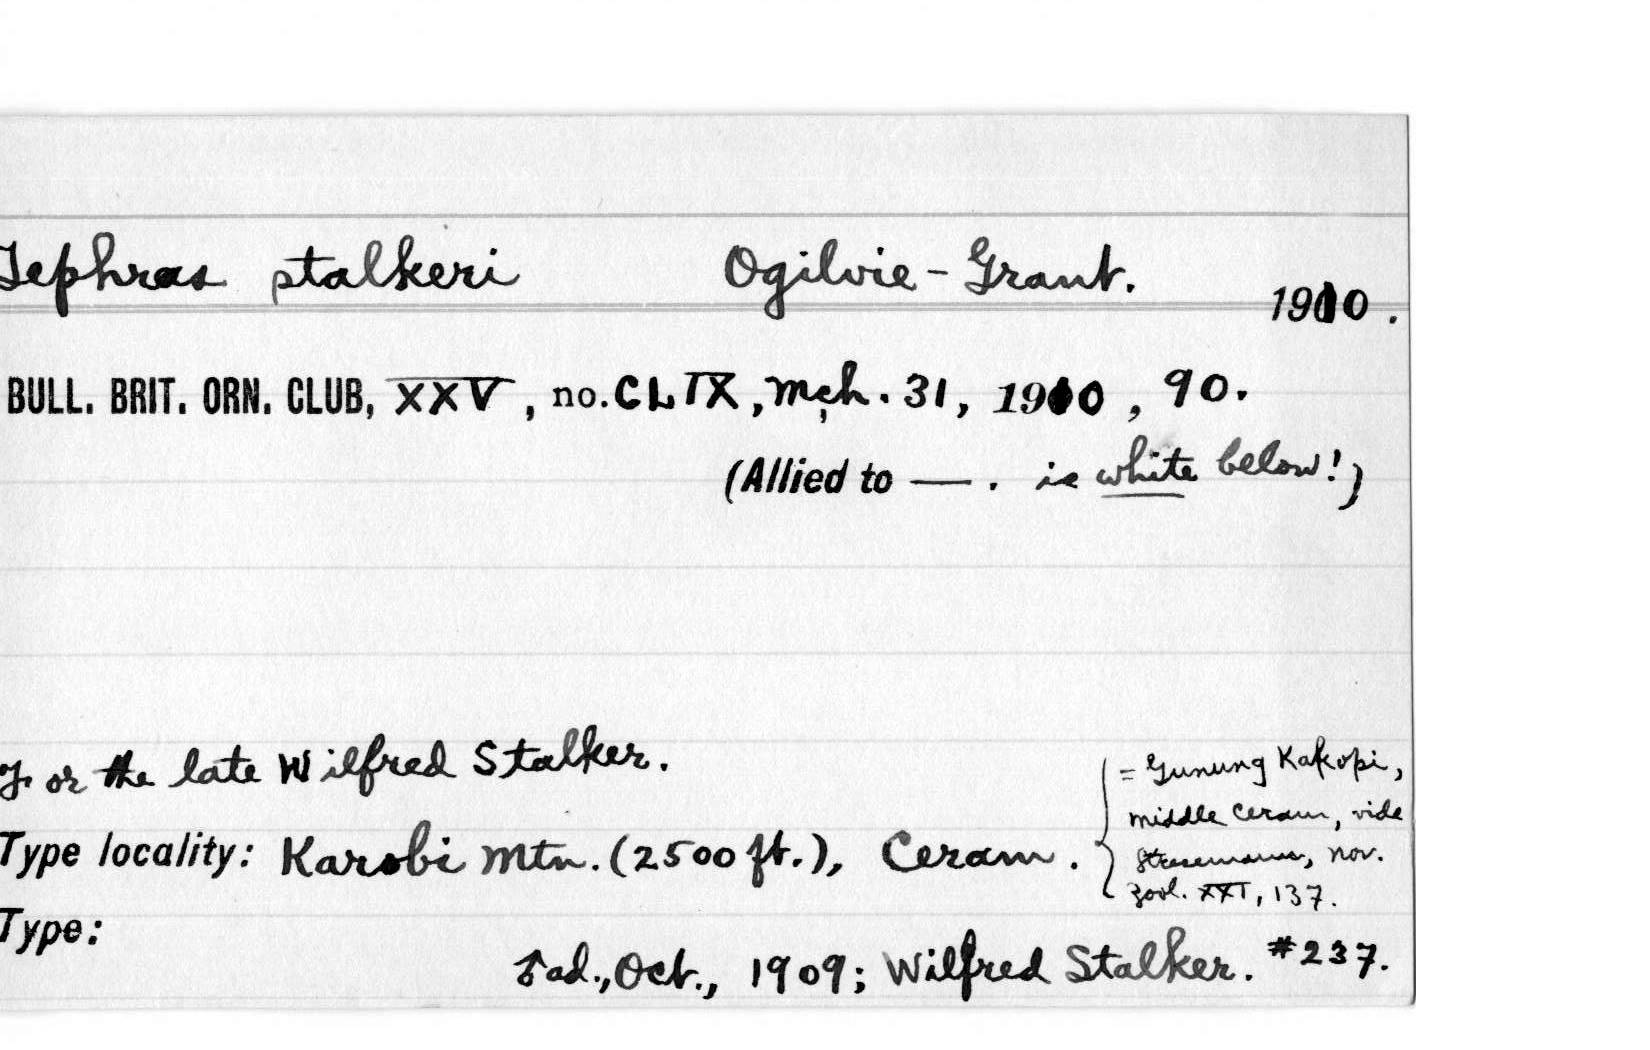 Tephras stalkeri Ogilvie-Grant.
1910.
BULL. BRIT. ORN. CLUB, XXV, no. CLIX, Mch. 31, 1910, 90.
(Allied to — . is white below!)
For the late Wilfred Stalker.
= Gunung Kakopi,
middle Ceram, vide
Type locality: Karobi Mtn. (2500 ft.), Ceram.
Stresemann, Nov.
Zool. XXI, 137.
Type:
♂ ad., Oct., 1909; Wilfred Stalker. #237.